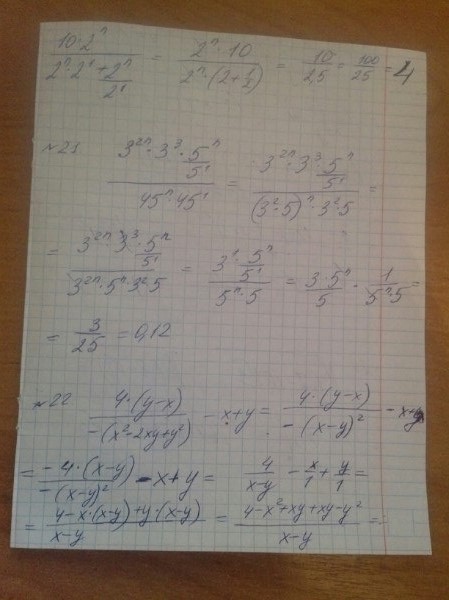 10·2ⁿ / (2ⁿ·2¹+2ⁿ/2¹) = 2ⁿ·10 / (2ⁿ·(2+1/2)) = 10/2,5 = 100/25 = 4
№21 (3²ⁿ·3³·5ⁿ/5¹) / (45ⁿ·45¹) = (3²ⁿ·3³·5ⁿ/5¹) / ((3²·5)ⁿ·3²·5) =
= (3²ⁿ·3³·5ⁿ/5¹) / (3²ⁿ·5ⁿ·3²·5) = (3¹·5ⁿ/5¹) / (5ⁿ·5) = 3·5ⁿ/5 · 1/(5ⁿ·5) =
= 3/25 = 0,12
№22 4·(y-x) / -(x²-2xy+y²) - x+y = 4·(y-x) / -(x-y)² - x+y
= -4·(x-y) / -(x-y)² - x+y = 4/(x-y) - x/1 + y/1 =
= (4-x·(x-y)+y·(x-y)) / (x-y) = (4-x²+xy+xy-y²) / (x-y) =